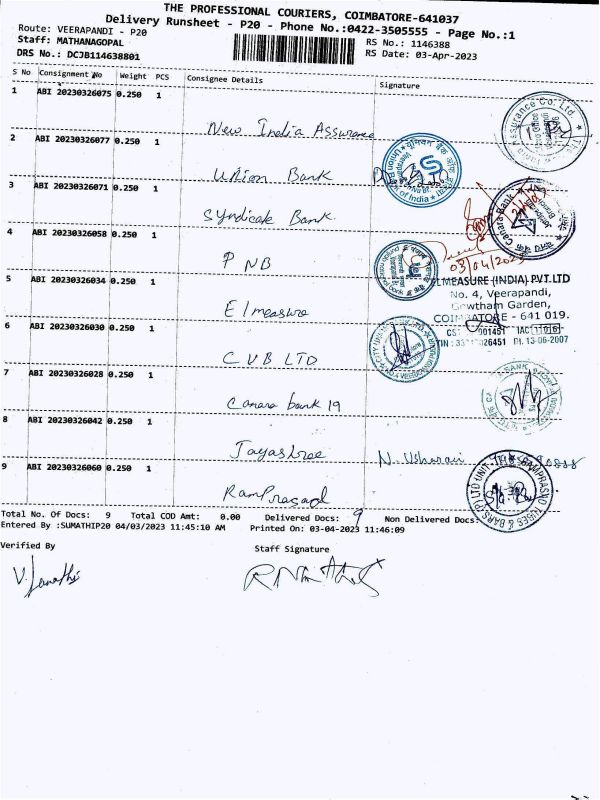 THE PROFESSIONAL COURIERS, COIMBATORE-641037
Delivery Runsheet - P20 - Phone No.:0422-3505555 - Page No.:1
Route: VEERAPANDI - P20
Staff: MATHANAGOPAL
DRS No.: DCJB114638801
RS No.: 1146388
RS Date: 03-Apr-2023
S No Consignment No Weight PCS Consignee Details Signature
1 ABI 20230326075 0.250 1
New India Assurance
2 ABI 20230326077 0.250 1
Union Bank
3 ABI 20230326071 0.250 1
Syndicate Bank
4 ABI 20230326058 0.250 1
PNB
03/04/2023
5 ABI 20230326034 0.250 1
Elmeasure
ELMEASURE (INDIA) PVT.LTD
No. 4, Veerapandi,
Gowtham Garden,
COIMBATORE - 641 019.
6 ABI 20230326030 0.250 1
CUB LTD
7 ABI 20230326028 0.250 1
Canara bank 19
8 ABI 20230326042 0.250 1
Jayashree
9 ABI 20230326060 0.250 1
RamPrasad
Total No. Of Docs: 9 Total COD Amt: 0.00 Delivered Docs: 9 Non Delivered Docs:
Entered By :SUMATHIP20 04/03/2023 11:45:10 AM Printed On: 03-04-2023 11:46:09
Verified By
Staff Signature